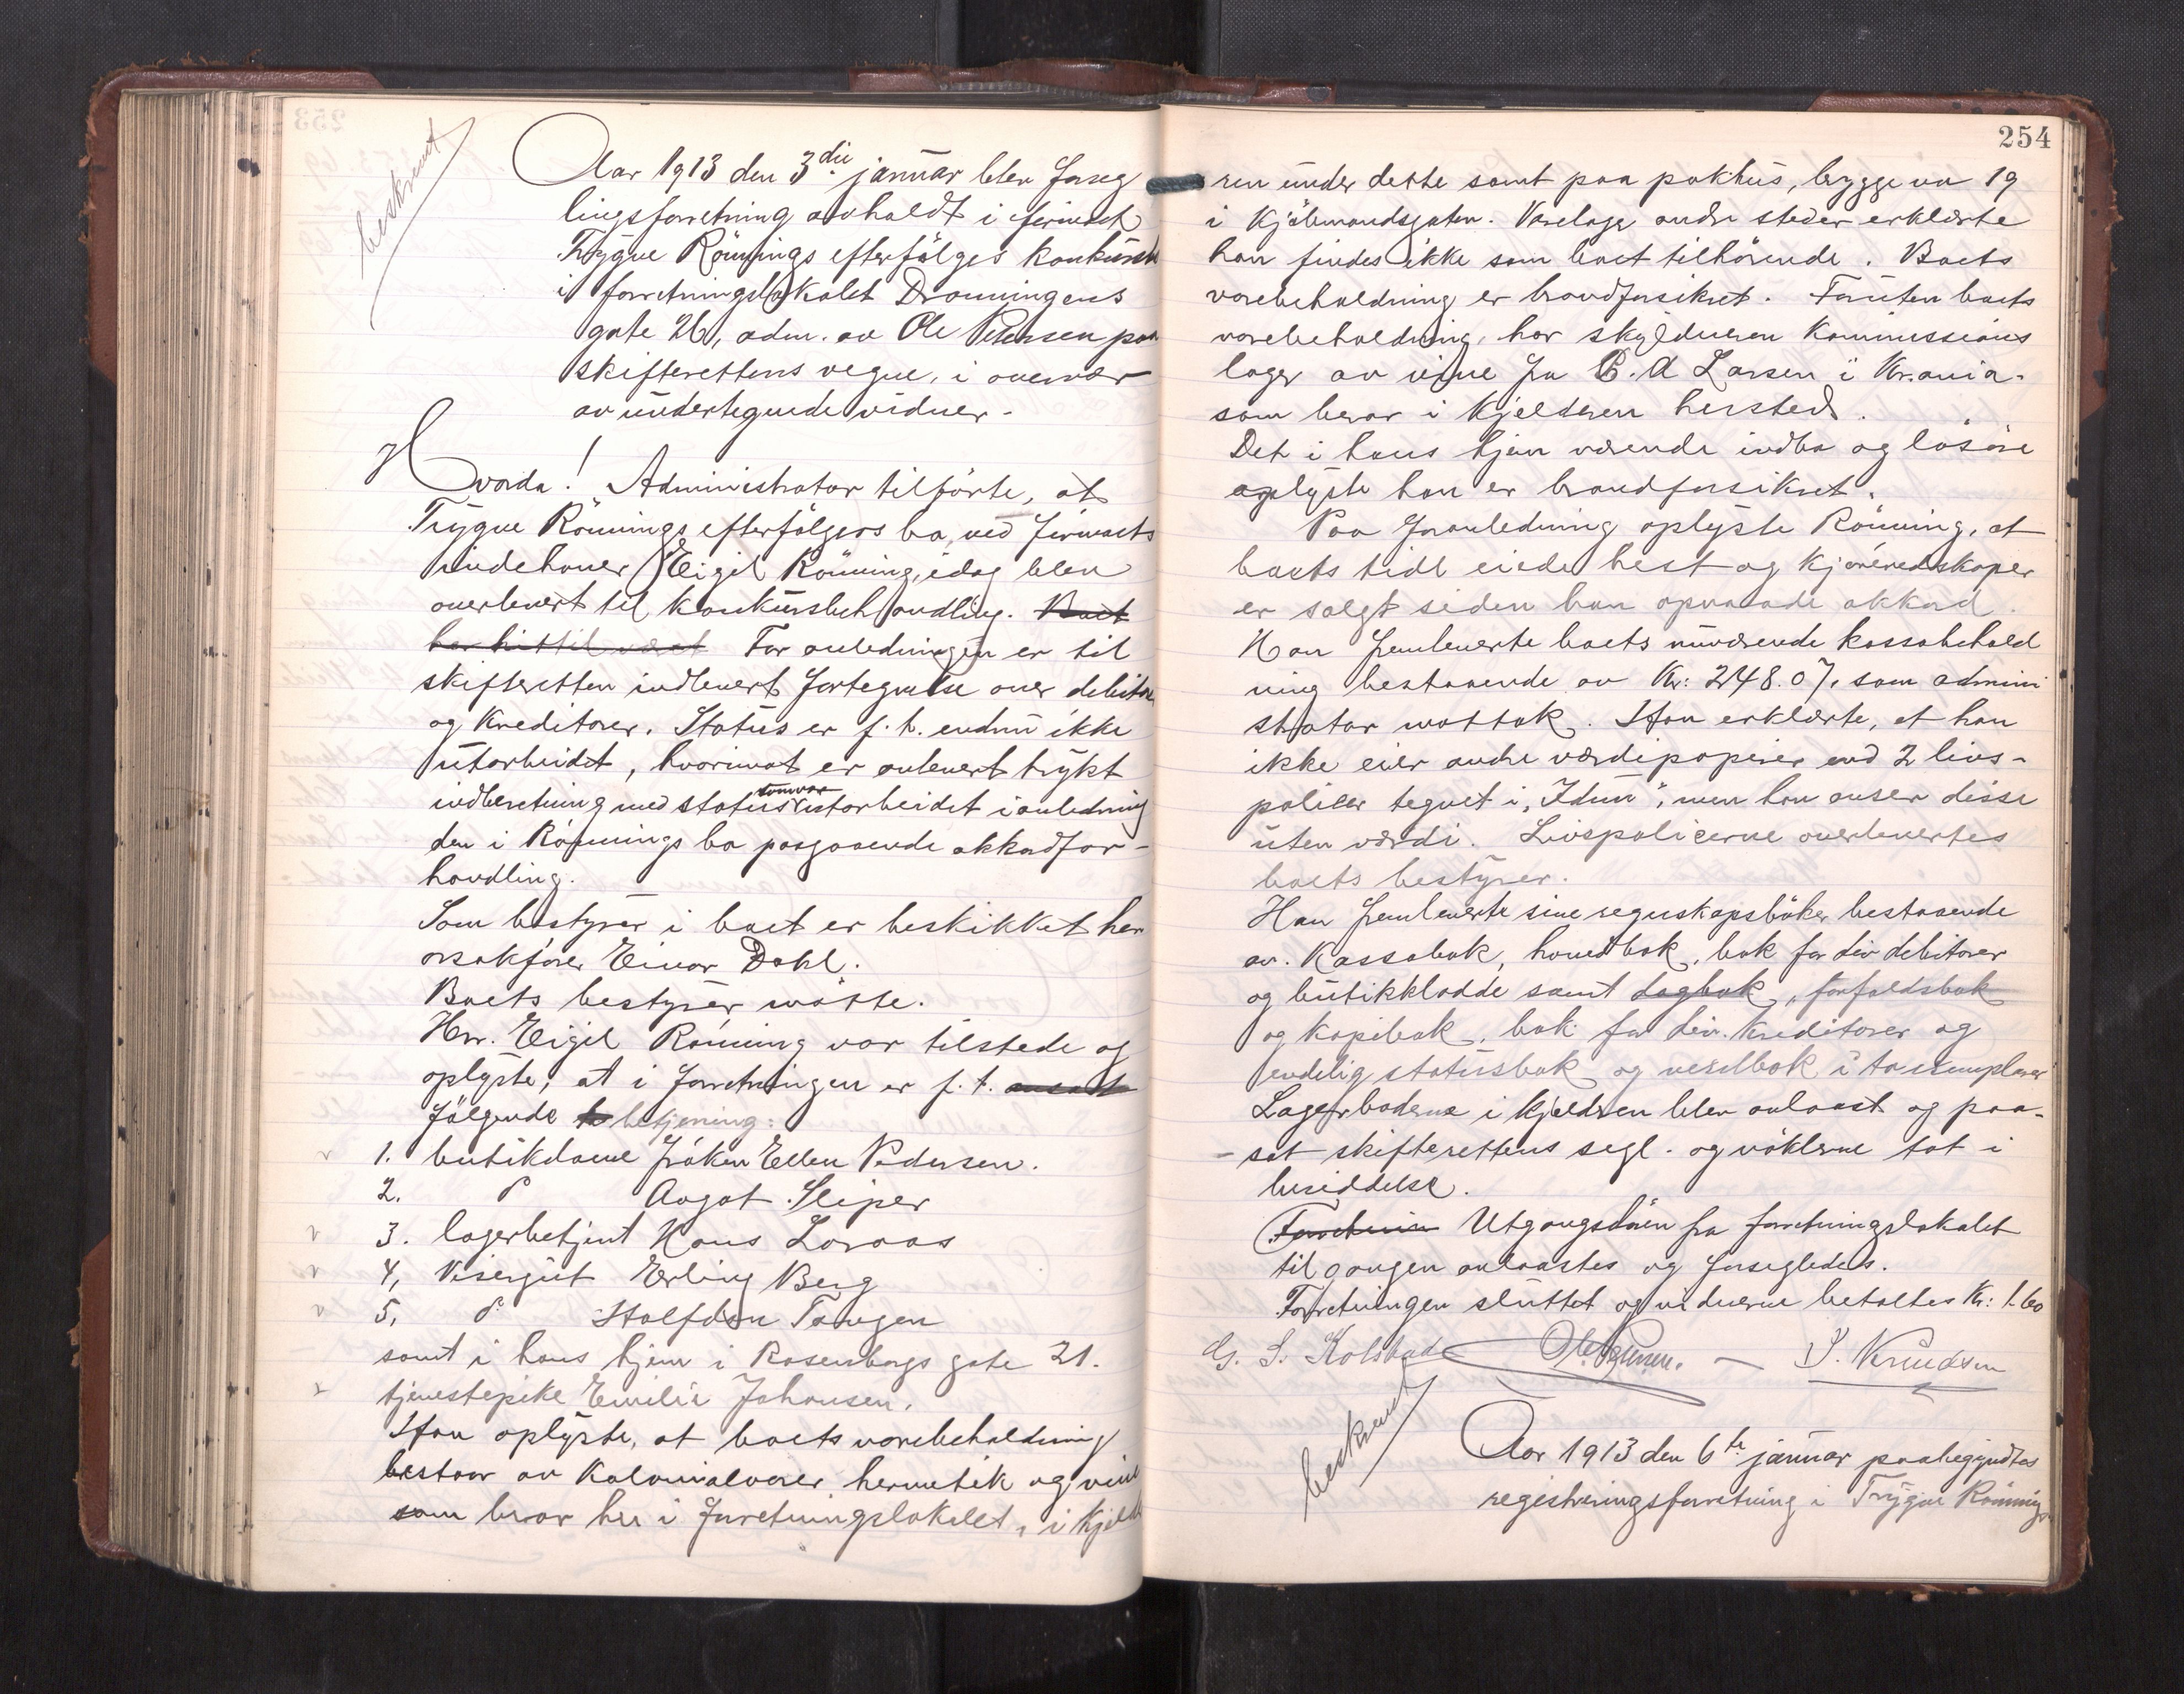 beskrevet
Aar 1913 den 3die januar blev forseg
lingsforretning avholdt i firmaet
Trygve Rönnings efterfölgers konkursbo
i forretningslokalet Dronningens
gate 26, adm. av Ole Petersen paa
skifterettens vegne, i overvær
av undertegnede vidner.
Hvorda! Administrator tilförte, at
Trygve Rönnings efterfölgers bo, ved firmaets
indehaver Eigil Rönning, idag blev
overlevert til konkursbehandling. Boet
har hittil været For anledningen er til
skifteretten indlevert fortegnelse over debitor
og kreditorer. Status er f. t. endnu ikke
utarbeidet, hvorimot er avlevert trykt
indberetning med status som var utarbeidet i anledning
den i Rönnings bo paagaaende akkordfor-
handling.
Som bestyrer i boet er beskikket hr
orsakförer Einar Dahl.
Boets bestyrer mötte.
Hr. Eigil Rönning var tilstede og
oplyste, at i forretningen er f. t. ansat
fölgende be betjening:
1. butikdame fröken Ellen Pedersen.
2. d Aagot Sliper
3. lagerbetjent Hans Loraas
4, Visergut Erling Berg
5, d Halfdan Tangen
samt i hans hjem i Rosenborgs gate 21.
tjenestepike Emilie Johansen.
Han oplyste, at boets varebeholdning
bestaar av kolonialvarer, hermetik og vine
som beror her i forretningslokalet, i kjelde
254
ren under dette samt paa pakhus, brygge no 19
i Kjöbmandsgaten. Varelager andre steder erklærte
han findes ikke som boet tilhörende. Boets
varebeholdning er brandforsikret. Foruten boets
varebeholdning, har skyldneren kommissions
lager av vine fra B. A Larsen i Kr.ania.
som beror i kjelderen hersteds.
Det i hans hjem værende indbo og lösöre
oplyste han er brandforsikret.
Paa foranledning oplyste Rönning, at
boets tidl eiede hest og kjöreredskaper
er solgt siden han opnaadde akkord.
Han fremleverte boets nuværende kassabehold
ning bestaaende av Kr: 248.07, som admini
strator mottok. Han erklærte, at han
ikke eier andre værdipapirer end 2 livs-
policer tegnet i „Idun", men han anser disse
uten værdi. Livspolicerne overlevertes
boets bestyrer.
Han fremleverte sine regnskapsböker bestaaende
av. kassabok, hovedbok, bok for div debitorer
og butikkladde samt dagbok, forfaldsbok
og kopibok, bok for div. kreditorer og
endelig statusbok og vexelbok i to exemplarer
Lagerboderne i kjelderen blev avlaast og paa-
sat skifterettens segl. og nöklerne tat i
besiddelse.
Utgangsdören fra forretningslokalet
til gangen avlaastes og forsegledes.
Forretningen sluttet og vidnerne betaltes Kr: 1.60
G. S. Kolstad Ole Petersen. — P. Knudsen
beskrevet
Aar 1913 den 6te januar paabegyndtes
registreringsforretning i Trygve Rönnings